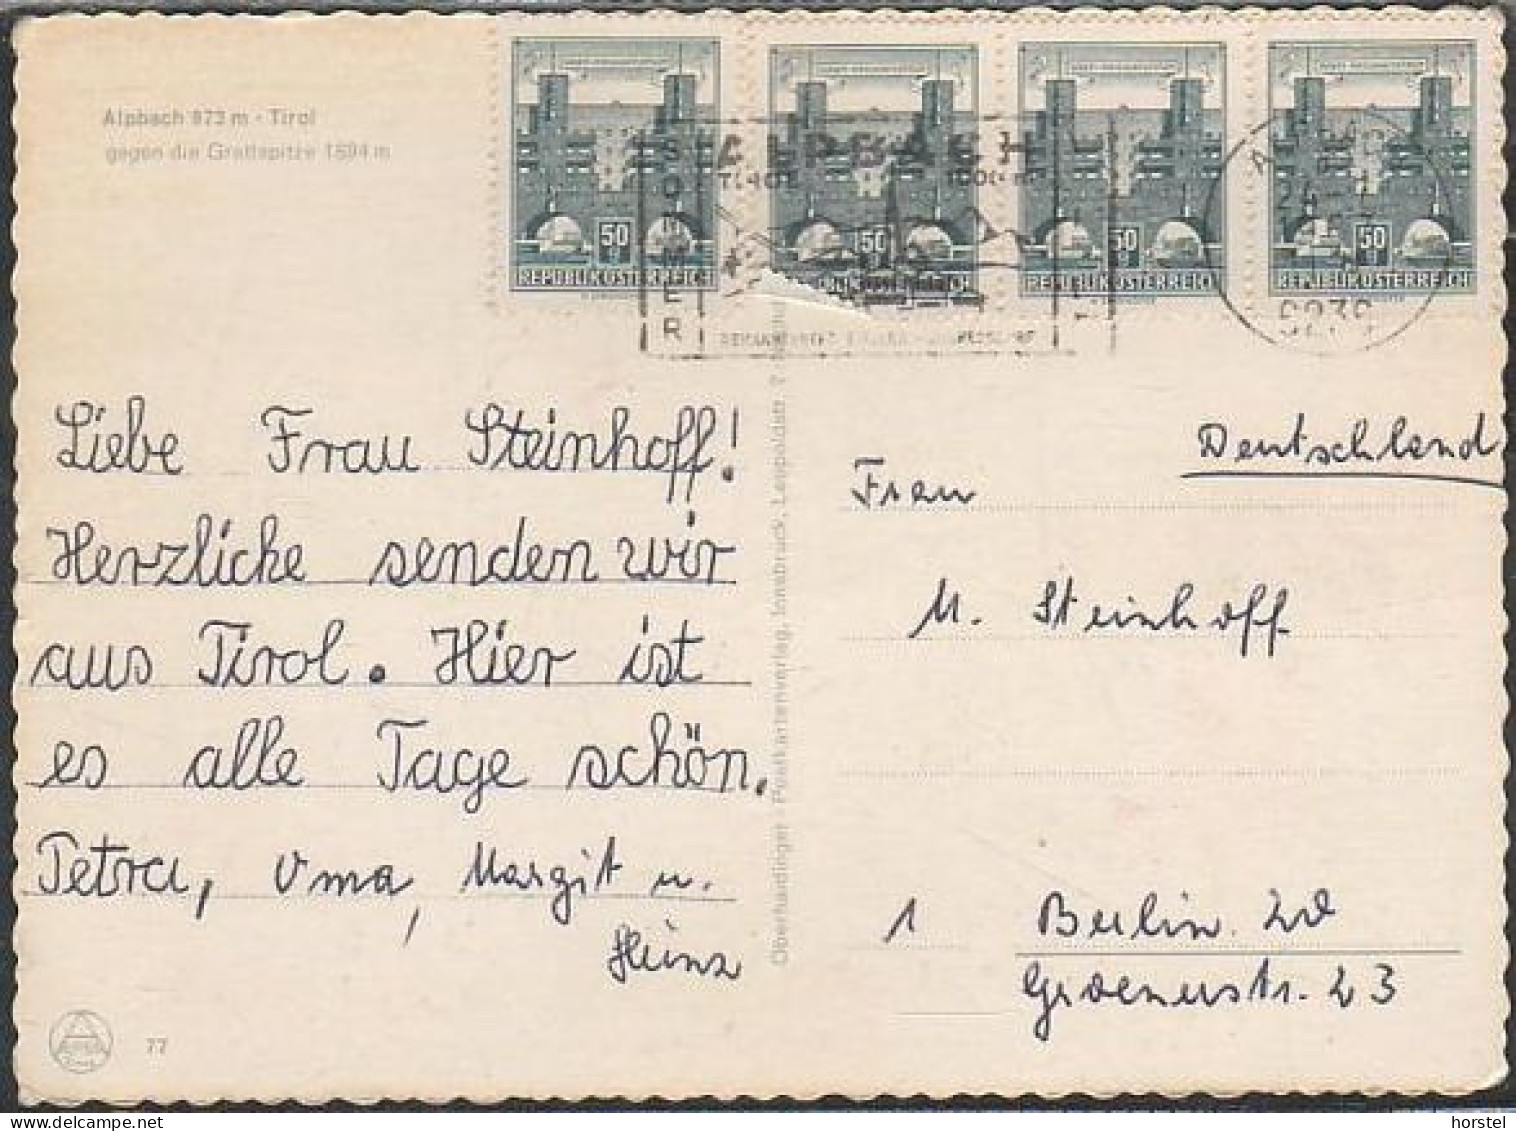 Alpbach 973 m - Tirol
gegen die Gratlspitze 1894 m
50 50 50 50
REPUBLIK ÖSTERREICH REPUBLIK ÖSTERREICH REPUBLIK ÖSTERREICH REPUBLIK ÖSTERREICH
SOMMER
ALPBACH
TIROL 1000 m
Liebe Frau Steinhoff!
Herzliche senden wir
aus Tirol. Hier ist
es alle Tage schön.
Petra, Oma, Margit u.
Heinz
Oberhaidinger Postkartenverlag, Innsbruck, Leopoldstr. 7
Deutschland
Frau
M. Steinhoff
1 Berlin 20
23
77
horstel